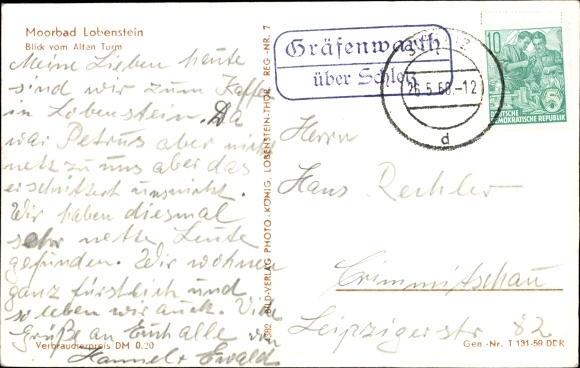 Moorbad Lobenstein
Blick vom Alten Turm
Meine Lieben heute
sind wir zum Kaffe
in Lobenstein. Da
war Petrus aber nicht
nett zu uns aber das
erschüttert uns nicht.
Wir haben diesmal
sehr nette Leute
gefunden. Wir wohnen
ganz fürstlich und
so leben wir auch. Viele
Grüße an Euch alle von
Hannel Ewald
Verbraucherpreis DM 0.20
BILD-VERLAG PHOTO-KÖNIG, LOBENSTEIN-THÜR. REG.-NR. 7
Gräfenwarth
über Schleiz
26.5.60.-12
d
10
DEUTSCHE
DEMOKRATISCHE REPUBLIK
Herrn
Hans Rechler
Crimmitschau
Leipzigerstr 82
Gen.-Nr. T 131-59 DDR